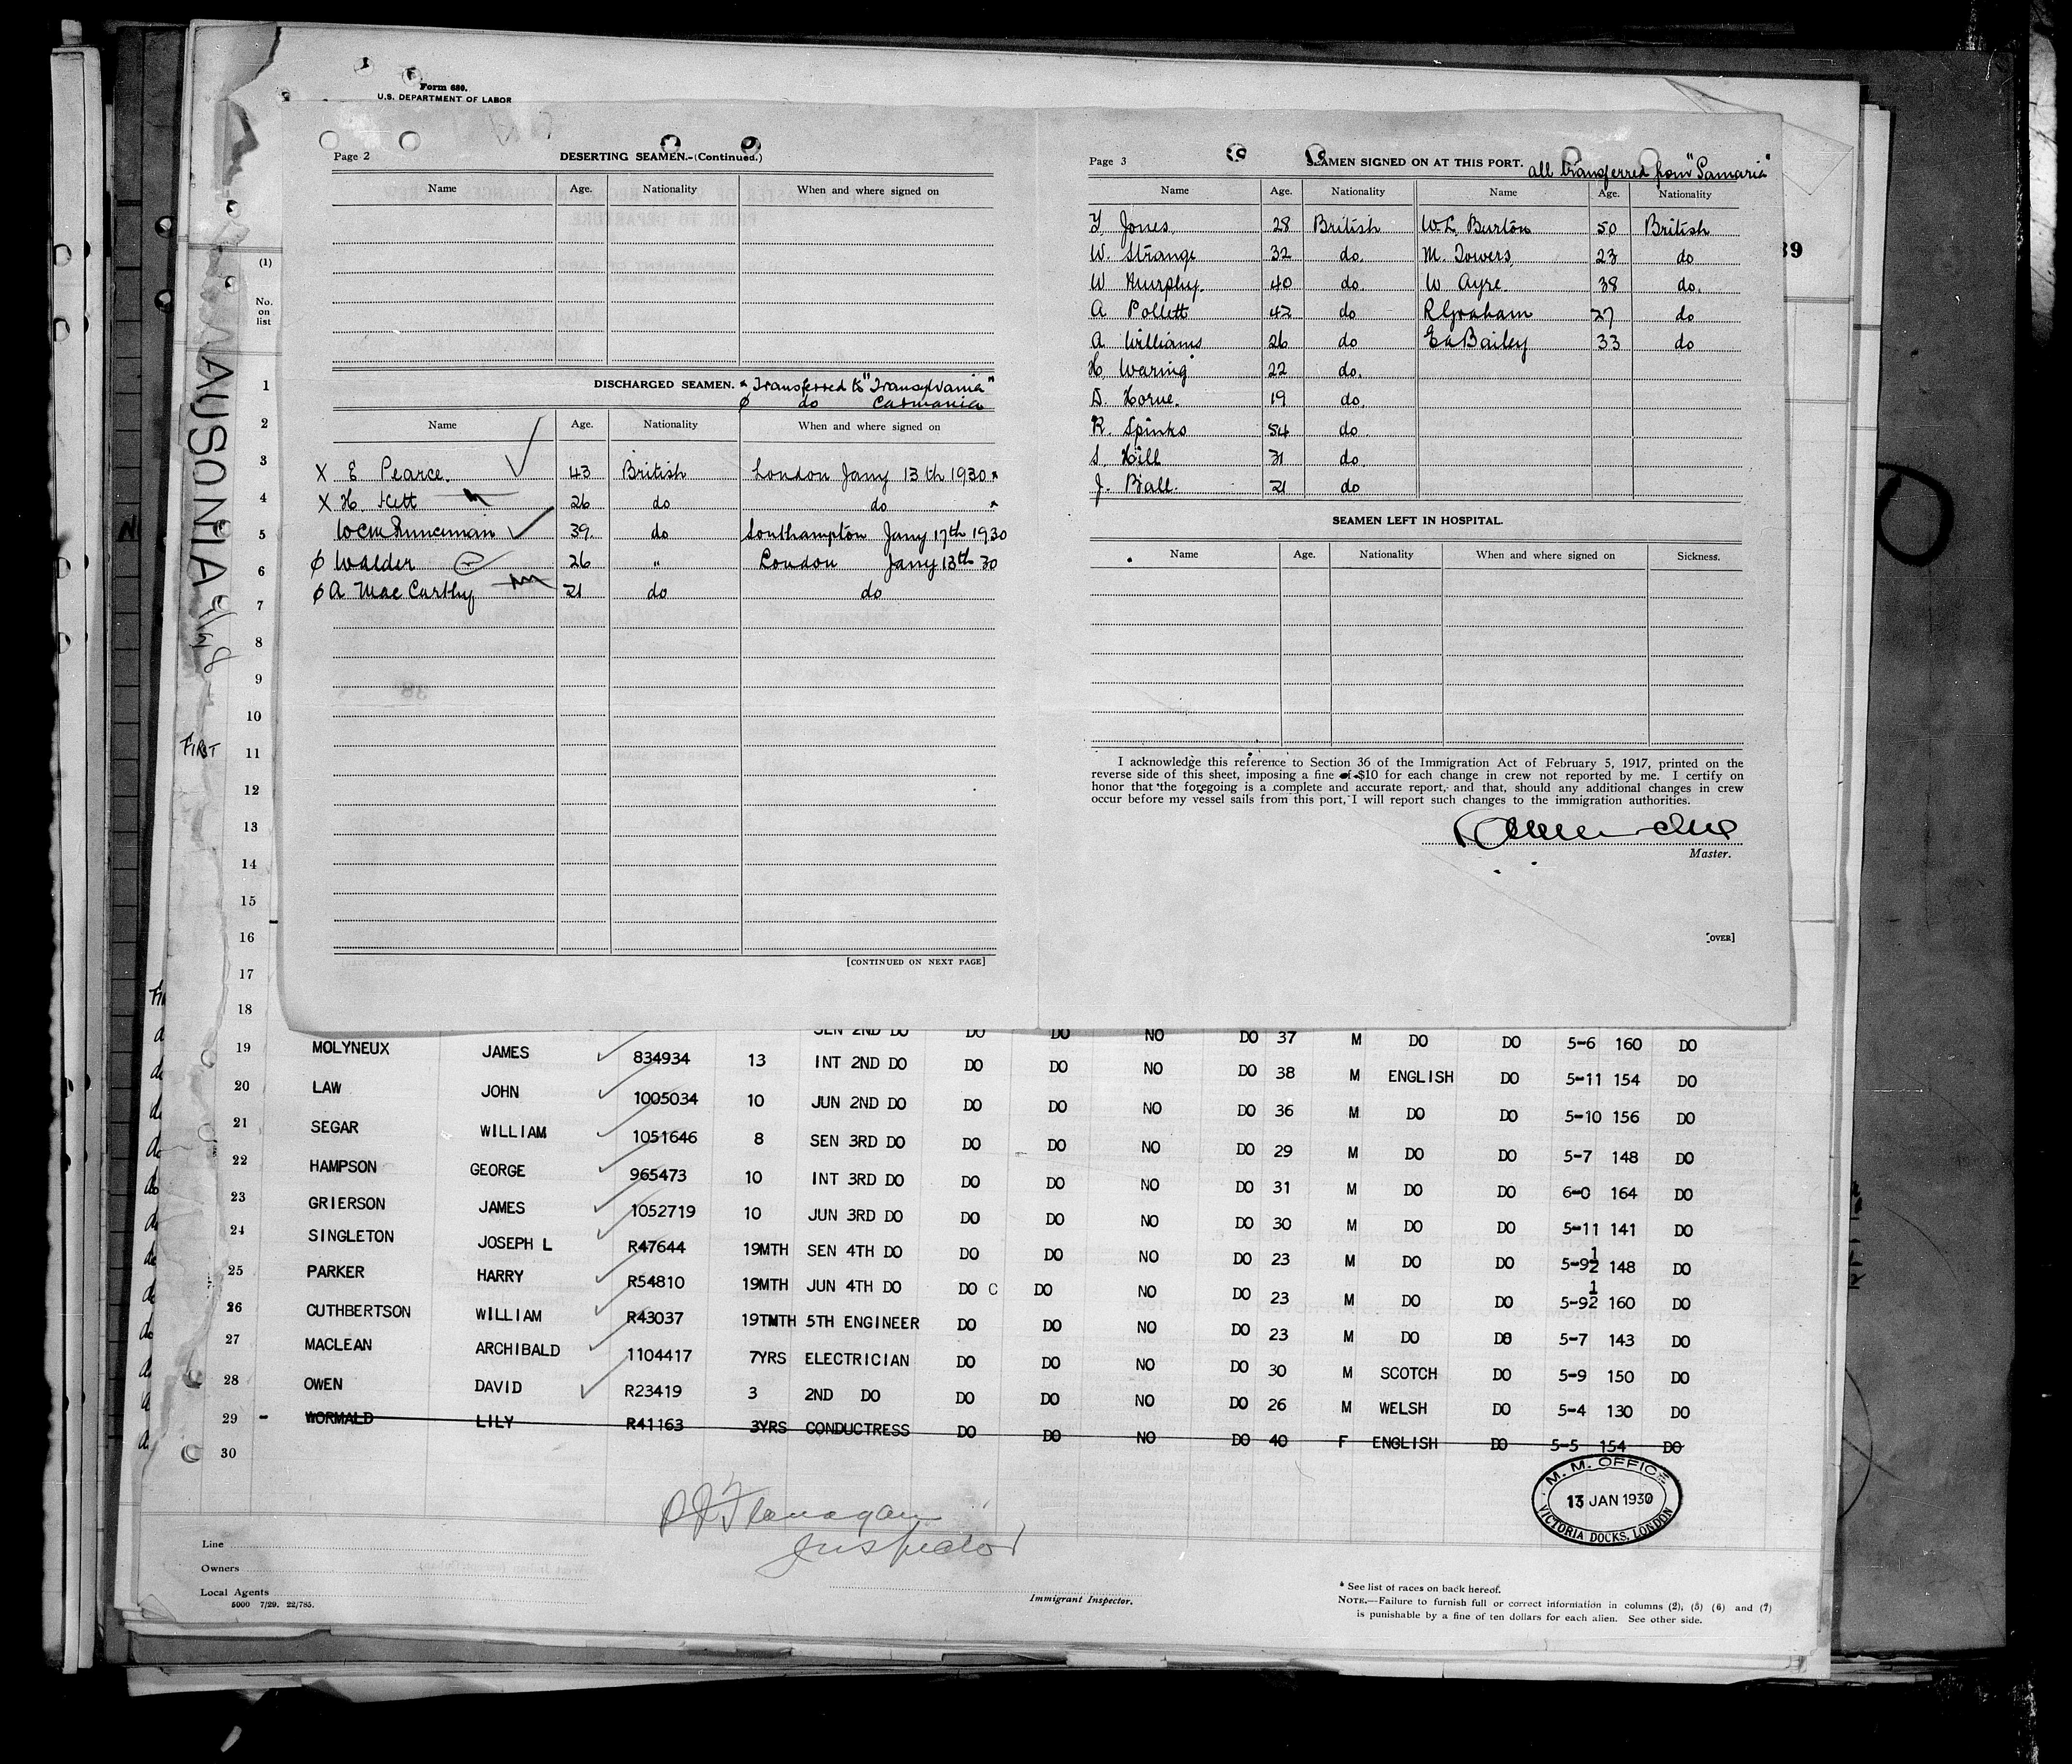 Form 680.
U.S. DEPARTMENT OF LABOR
AUSONIA
FIRST
(1)
No. on list
1
2
3
4
5
6
7
8
9
10
11
12
13
14
15
16
17
18
Page 2
DESERTING SEAMEN.-(Continued.)
Name Age. Nationality When and where signed on
DISCHARGED SEAMEN. * Transferred to "Transylvania"
ϕ do Carmania
Name Age. Nationality When and where signed on
X E Pearce. 43 British London Jany 13th 1930 *
X H Kett 26 do do *
39. do Southampton Jany 17th 1930
ϕ Walder 26 " London Jany 13th 30
ϕ A MacCarthy 21 do do
[CONTINUED ON NEXT PAGE]
Page 3
SEAMEN SIGNED ON AT THIS PORT. all transferred from "Samaria"
Name Age. Nationality Name Age. Nationality
Jones 28 British W.L. Burton 50 British
W. Strange 32 do. M. Towers 23 do
W Murphy. 40 do. W Ayre 38 do.
A Pollett 42 do R Graham 27 do
A Williams 26 do Bailey 33 do
H. Waring 22 do.
D. Horne. 19 do.
R. Spinks 54 do.
S. Hill 31 do.
J. Ball. 21 do
SEAMEN LEFT IN HOSPITAL.
Name Age. Nationality When and where signed on Sickness.
I acknowledge this reference to Section 36 of the Immigration Act of February 5, 1917, printed on the
reverse side of this sheet, imposing a fine of $10 for each change in crew not reported by me. I certify on
honor that the foregoing is a complete and accurate report, and that, should any additional changes in crew
occur before my vessel sails from this port, I will report such changes to the immigration authorities.
Master.
[OVER]
39
SEN 2ND DO DO DO NO DO 37 M DO DO 5-6 160 DO
19 MOLYNEUX JAMES 834934 13 INT 2ND DO DO DO NO DO 38 M ENGLISH DO 5-11 154 DO
20 LAW JOHN 1005034 10 JUN 2ND DO DO DO NO DO 36 M DO DO 5-10 156 DO
21 SEGAR WILLIAM 1051646 8 SEN 3RD DO DO DO NO DO 29 M DO DO 5-7 148 DO
22 HAMPSON GEORGE 965473 10 INT 3RD DO DO DO NO DO 31 M DO DO 6-0 164 DO
23 GRIERSON JAMES 1052719 10 JUN 3RD DO DO DO NO DO 30 M DO DO 5-11 141 DO
24 SINGLETON JOSEPH L R47644 19MTH SEN 4TH DO DO DO NO DO 23 M DO DO 5-9½ 148 DO
25 PARKER HARRY R54810 19MTH JUN 4TH DO DO C DO NO DO 23 M DO DO 5-9½ 160 DO
26 CUTHBERTSON WILLIAM R43037 19TMTH 5TH ENGINEER DO DO NO DO 23 M DO DO 5-7 143 DO
27 MACLEAN ARCHIBALD 1104417 7YRS ELECTRICIAN DO DO NO DO 30 M SCOTCH DO 5-9 150 DO
28 OWEN DAVID R23419 3 2ND DO DO DO NO DO 26 M WELSH DO 5-4 130 DO
29 - WORMALD LILY R41163 3YRS CONDUCTRESS DO DO NO DO 40 F ENGLISH DO 5-5 154 DO
30
M. M. OFFICE
13 JAN 1930
VICTORIA DOCKS, LONDON
Flanagan
Inspector
Line
Owners
Local Agents
5000 7/29. 22/785.
Immigrant Inspector.
* See list of races on back hereof.
NOTE.—Failure to furnish full or correct information in columns (2), (5) (6) and (7)
is punishable by a fine of ten dollars for each alien. See other side.